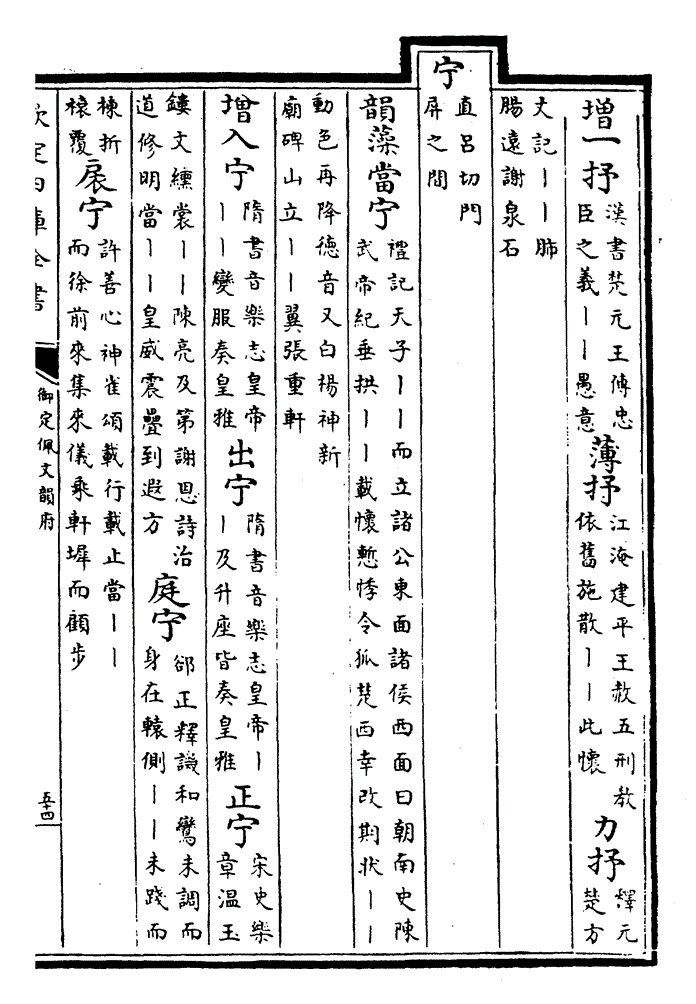 增一抒 漢書楚元王傳忠
臣之義丨丨愚意
薄抒 江淹建平王赦五刑教
依舊施散丨丨此懷
力抒 釋元
楚方
丈記丨丨肺
腸遠謝泉石
宁 直呂切門
屏之間
韻藻當宁 禮記天子丨丨而立諸公東面諸侯西面曰朝南史陳
武帝紀垂拱丨丨載懷慙悸令狐楚西幸改期狀丨丨
動色再降德音又白楊神新
廟碑山立丨丨翼張重軒
增入宁 隋書音樂志皇帝
丨丨變服奏皇雅
出宁 隋書音樂志皇帝丨
丨及升座皆奏皇雅
正宁 宋史樂
章溫玉
鏤文纁裳丨丨陳亮及第謝恩詩治
道修明當丨丨皇威震疊到遐方
庭宁 郤正釋譏和鸞未調而
身在轅側丨丨未踐而
棟折
榱覆
扆宁 許善心神雀頌載行載止當丨丨
而徐前來集來儀乘軒墀而顧步
欽定四庫全書
御定佩文韻府
五十四